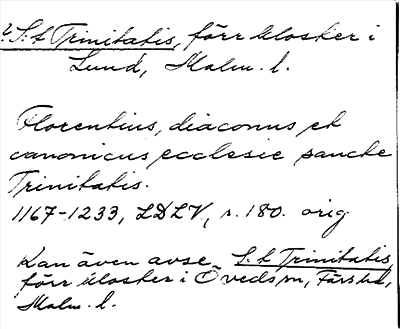 ? S:t Trinitatis, förr kloster i
Lund, Malm. l.
Florentius, diaconus et
canonicus ecclesie sancte
Trinitatis.
1167-1233, LDLV, s. 180. orig
Kan även avse S:t Trinitatis,
förr kloster i Öveds sn, Färs hd,
Malm. l.